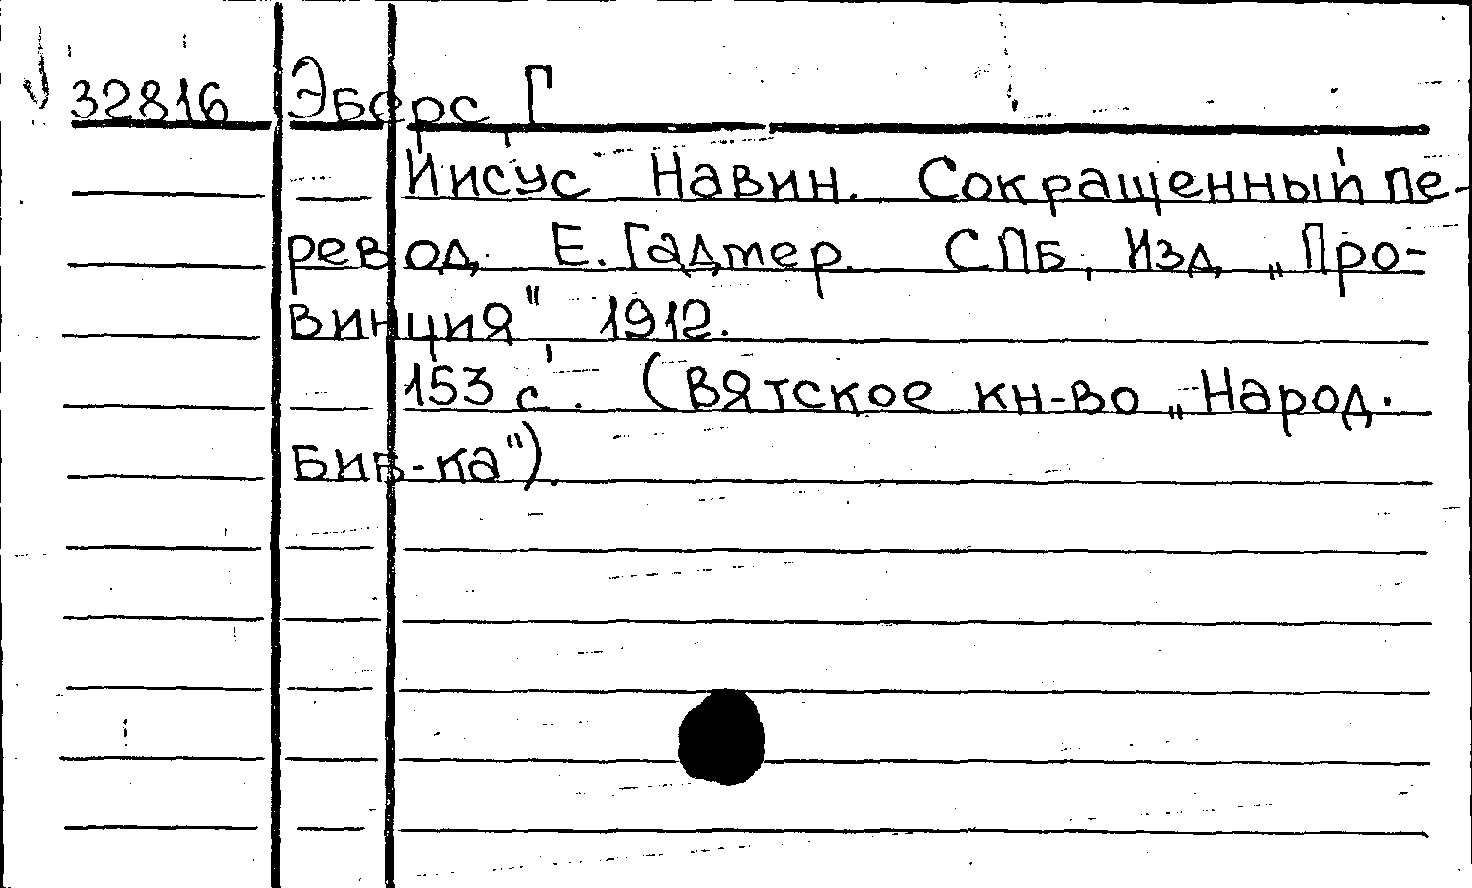 32816 Эберс Г
Иисус Навин. Сокращенный пе-
ревод Е. Гадмер. СПБ, Изд. „Про-
винция", 1912.
153 с. (Вятское кн-во „Народ.
Биб-ка").